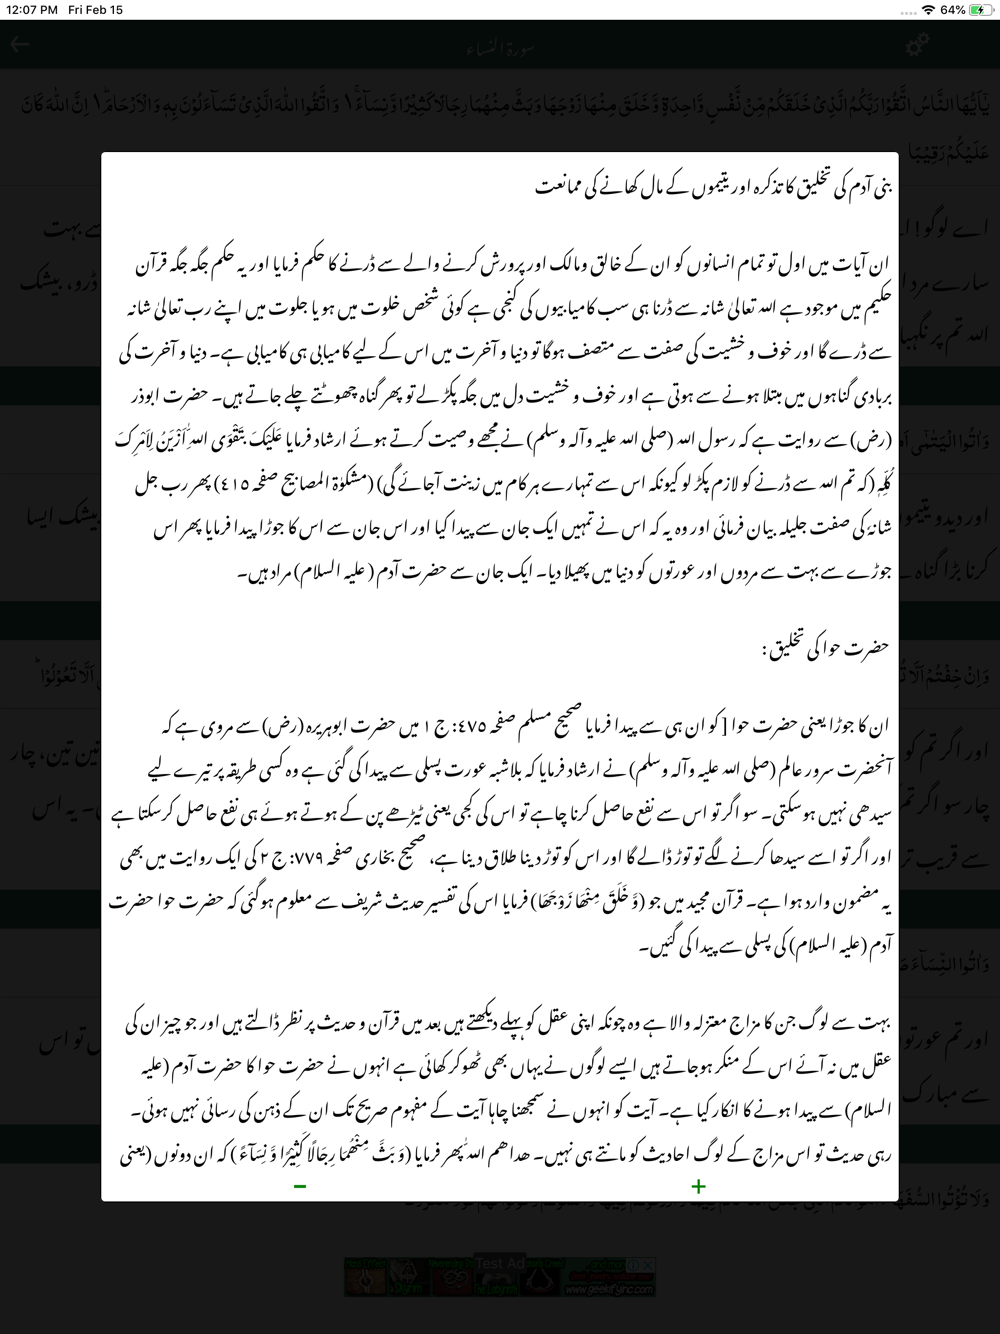 12:07 PM Fri Feb 15 64%
سورة النساء
يٰٓاَيُّهَا النَّاسُ اتَّقُوْا رَبَّكُمُ الَّذِيْ خَلَقَكُمْ مِّنْ نَّفْسٍ وَّاحِدَةٍ وَّخَلَقَ مِنْهَا زَوْجَهَا وَبَثَّ مِنْهُمَا رِجَالًا كَثِيْرًا وَّنِسَاۗءً ۚ وَاتَّقُوا اللّٰهَ الَّذِيْ تَسَاۗءَلُوْنَ بِهٖ وَالْاَرْحَامَ ۭ اِنَّ اللّٰهَ كَانَ
عَلَيْكُمْ رَقِيْبًا
بنی آدم کی تخلیق کا تذکرہ اور یتیموں کے مال کھانے کی ممانعت
اے لوگو! سے بہت
ان آیات میں اول تو تمام انسانوں کو ان کے خالق ومالک اور پرورش کرنے والے سے ڈرنے کا حکم فرمایا اور یہ حکم جگہ جگہ قرآن
سارے مرد ڈرو، بیشک
حکیم میں موجود ہے اللہ تعالیٰ شانہ سے ڈرنا ہی سب کامیابیوں کی کنجی ہے کوئی شخص خلوت میں ہو یا جلوت میں اپنے رب تعالیٰ شانہ
اللہ تم پر
سے ڈرے گا اور خوف و خشیت کی صفت سے متصف ہوگا تو دنیا و آخرت میں اس کے لیے کامیابی ہی کامیابی ہے۔ دنیا و آخرت کی
بربادی گناہوں میں مبتلا ہونے سے ہوتی ہے اور خوف و خشیت دل میں جگہ پکڑ لے تو پھر گناہ چھوٹتے چلے جاتے ہیں۔ حضرت ابوذر
(رض) سے روایت ہے کہ رسول اللہ (صلی اللہ علیہ وآلہ وسلم) نے مجھے وصیت کرتے ہوئے ارشاد فرمایا عَلَیْکَ بِتَقْوَی اللہِ اَزْیَنُ لِاَمْرِکَ
کُلِّہٖ (کہ تم اللہ سے ڈرنے کو لازم پکڑ لو کیونکہ اس سے تمہارے ہر کام میں زینت آجائے گی) (مشکوٰۃ المصابیح صفحہ ٤١٥) پھر رب جل
اور دیدو بیشک ایسا
شانہٗ کی صفت جلیلہ بیان فرمائی اور وہ یہ کہ اس نے تمہیں ایک جان سے پیدا کیا اور اس جان سے اس کا جوڑا پیدا فرمایا پھر اس
کرنا بڑا گناہ
جوڑے سے بہت سے مردوں اور عورتوں کو دنیا میں پھیلا دیا۔ ایک جان سے حضرت آدم (علیہ السلام) مراد ہیں۔
حضرت حوا کی تخلیق :
اور اگر تم کو تین تین، چار
ان کا جوڑا یعنی حضرت حوا [ کو ان ہی سے پیدا فرمایا صحیح مسلم صفحہ ٤٧٥: ج ١ میں حضرت ابوہریرہ (رض) سے مروی ہے کہ
آنحضرت سرور عالم (صلی اللہ علیہ وآلہ وسلم) نے ارشاد فرمایا کہ بلاشبہ عورت پسلی سے پیدا کی گئی ہے وہ کسی طریقہ پر تیرے لیے
چار سو اگر یہ اس
سیدھی نہیں ہوسکتی۔ سو اگر تو اس سے نفع حاصل کرنا چاہے تو اس کی کجی یعنی ٹیڑھے پن کے ہوتے ہوئے ہی نفع حاصل کرسکتا ہے
سے قریب
اور اگر تو اسے سیدھا کرنے لگے تو توڑ ڈالے گا اور اس کو توڑ دینا طلاق دینا ہے، صحیح بخاری صفحہ ٧٧٩: ج ٢ کی ایک روایت میں بھی
یہ مضمون وارد ہوا ہے۔ قرآن مجید میں جو (وَّ خَلَقَ مِنْھَا زَوْجَھَا) فرمایا اس کی تفسیر حدیث شریف سے معلوم ہوگئی کہ حضرت حوا حضرت
آدم (علیہ السلام) کی پسلی سے پیدا کی گئیں۔
بہت سے لوگ جن کا مزاج معتزلہ والا ہے وہ چونکہ اپنی عقل کو پہلے دیکھتے ہیں بعد میں قرآن و حدیث پر نظر ڈالتے ہیں اور جو چیز ان کی
اور تم تو اس
عقل میں نہ آئے اس کے منکر ہوجاتے ہیں ایسے لوگوں نے یہاں بھی ٹھوکر کھائی ہے انہوں نے حضرت حوا کا حضرت آدم (علیہ
سے مبارک
السلام) سے پیدا ہونے کا انکار کیا ہے۔ آیت کو انہوں نے سمجھنا چاہا آیت کے مفہوم صریح تک ان کے ذہن کی رسائی نہیں ہوئی۔
رہی حدیث تو اس مزاج کے لوگ احادیث کو مانتے ہی نہیں۔ ھداھم اللہ پھر فرمایا (وَ بَثَّ مِنْھُمَا رِجَالًا کَثِیْرًا وَّ نِسَآءً) کہ ان دونوں (یعنی
− +
Test Ad
www.geekifyinc.com